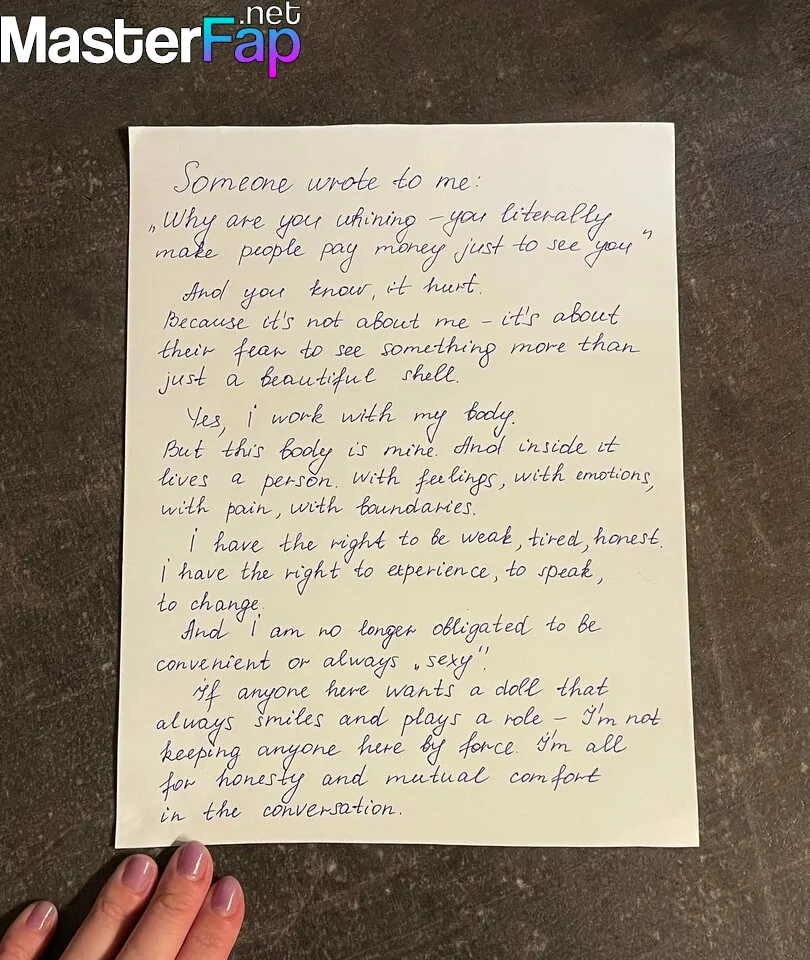 MasterFap.net
Someone wrote to me:
„Why are you whining – you literally
make people pay money just to see you"
And you know, it hurt.
Because it's not about me – it's about
their fear to see something more than
just a beautiful shell.
Yes, i work with my body.
But this body is mine. And inside it
lives a person. With feelings, with emotions,
with pain, with boundaries.
I have the right to be weak, tired, honest.
I have the right to experience, to speak,
to change.
And i am no longer obligated to be
convenient or always „sexy".
If anyone here wants a doll that
always smiles and plays a role – I'm not
keeping anyone here by force. I'm all
for honesty and mutual comfort
in the conversation.